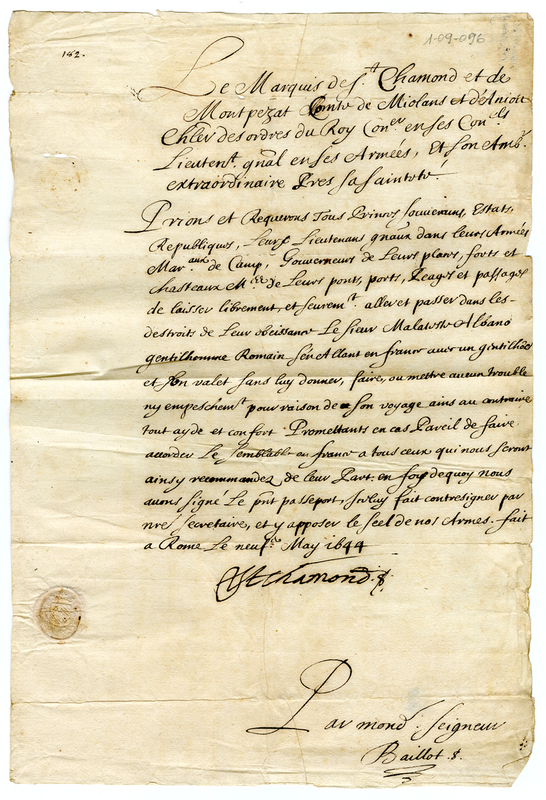 1-09-096
142.
Le Marquis de St. Chamond et de
Montpezat Comte de Miolans et d'Aniou
Chler des ordres du Roy Coner. en ses Conels
Lieutent. gnãl en ses Armées, Et son Amb.r
extraordinaire Pres sa saintete.
Prions et Requerons Tous Princes souverains, Estats,
Republiques, Leurs Lieutenans gnãux dans leurs Armées
Mar.aux de Camp, Gouverneurs de Leurs places, forts et
chasteaux de Leurs ponts, ports, Peages et passages
de laisser librement, et seuremt. aller et passer dans les
destroits de Leur obeissance Le sieur Malateste Albano
gentilhomme Romain s'en Allant en france avec un gentilhomme
et son valet sans luy donner, faire, ou mettre aucun trouble
ny empeschemt. pour raison de son voyage ains au contraire
tout ayde et confort. Promettants en cas Pareil de faire
accorder Le semblable en france a tous ceux qui nous seront
ainsy recommandez de leur Part. en foy de quoy nous
avons signé Le pnt passeport, Icelluy fait contresigner par
nre secretaire, et y apposer le seel de nos Armes. fait
a Rome Le neufe. May 1644
St Chamond.
Par mond. seigneur
Baillot